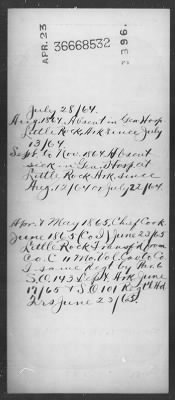 APR. 23
36668532
2396.
July 28/64.
Aug. 1864, Absent in Gen Hosp
Little Rock, Ark since July
13/64.
Sept. to Nov. 1864 Absent
sick in Gen. Hospital
Little Rock, Ark. since
Aug. 12/64 or July 22/64.
Apr. & May 1865, Chief Cook
June 1865 (Co I) June 23/65
Little Rock Transf'd from
Co. C 11 Mo. Vol. Cav. to Co.
I same Regt by
S.O. 143 Dept Ark June
17/65 & S.O 101 Regtl Hd
Qrs June 23/65.